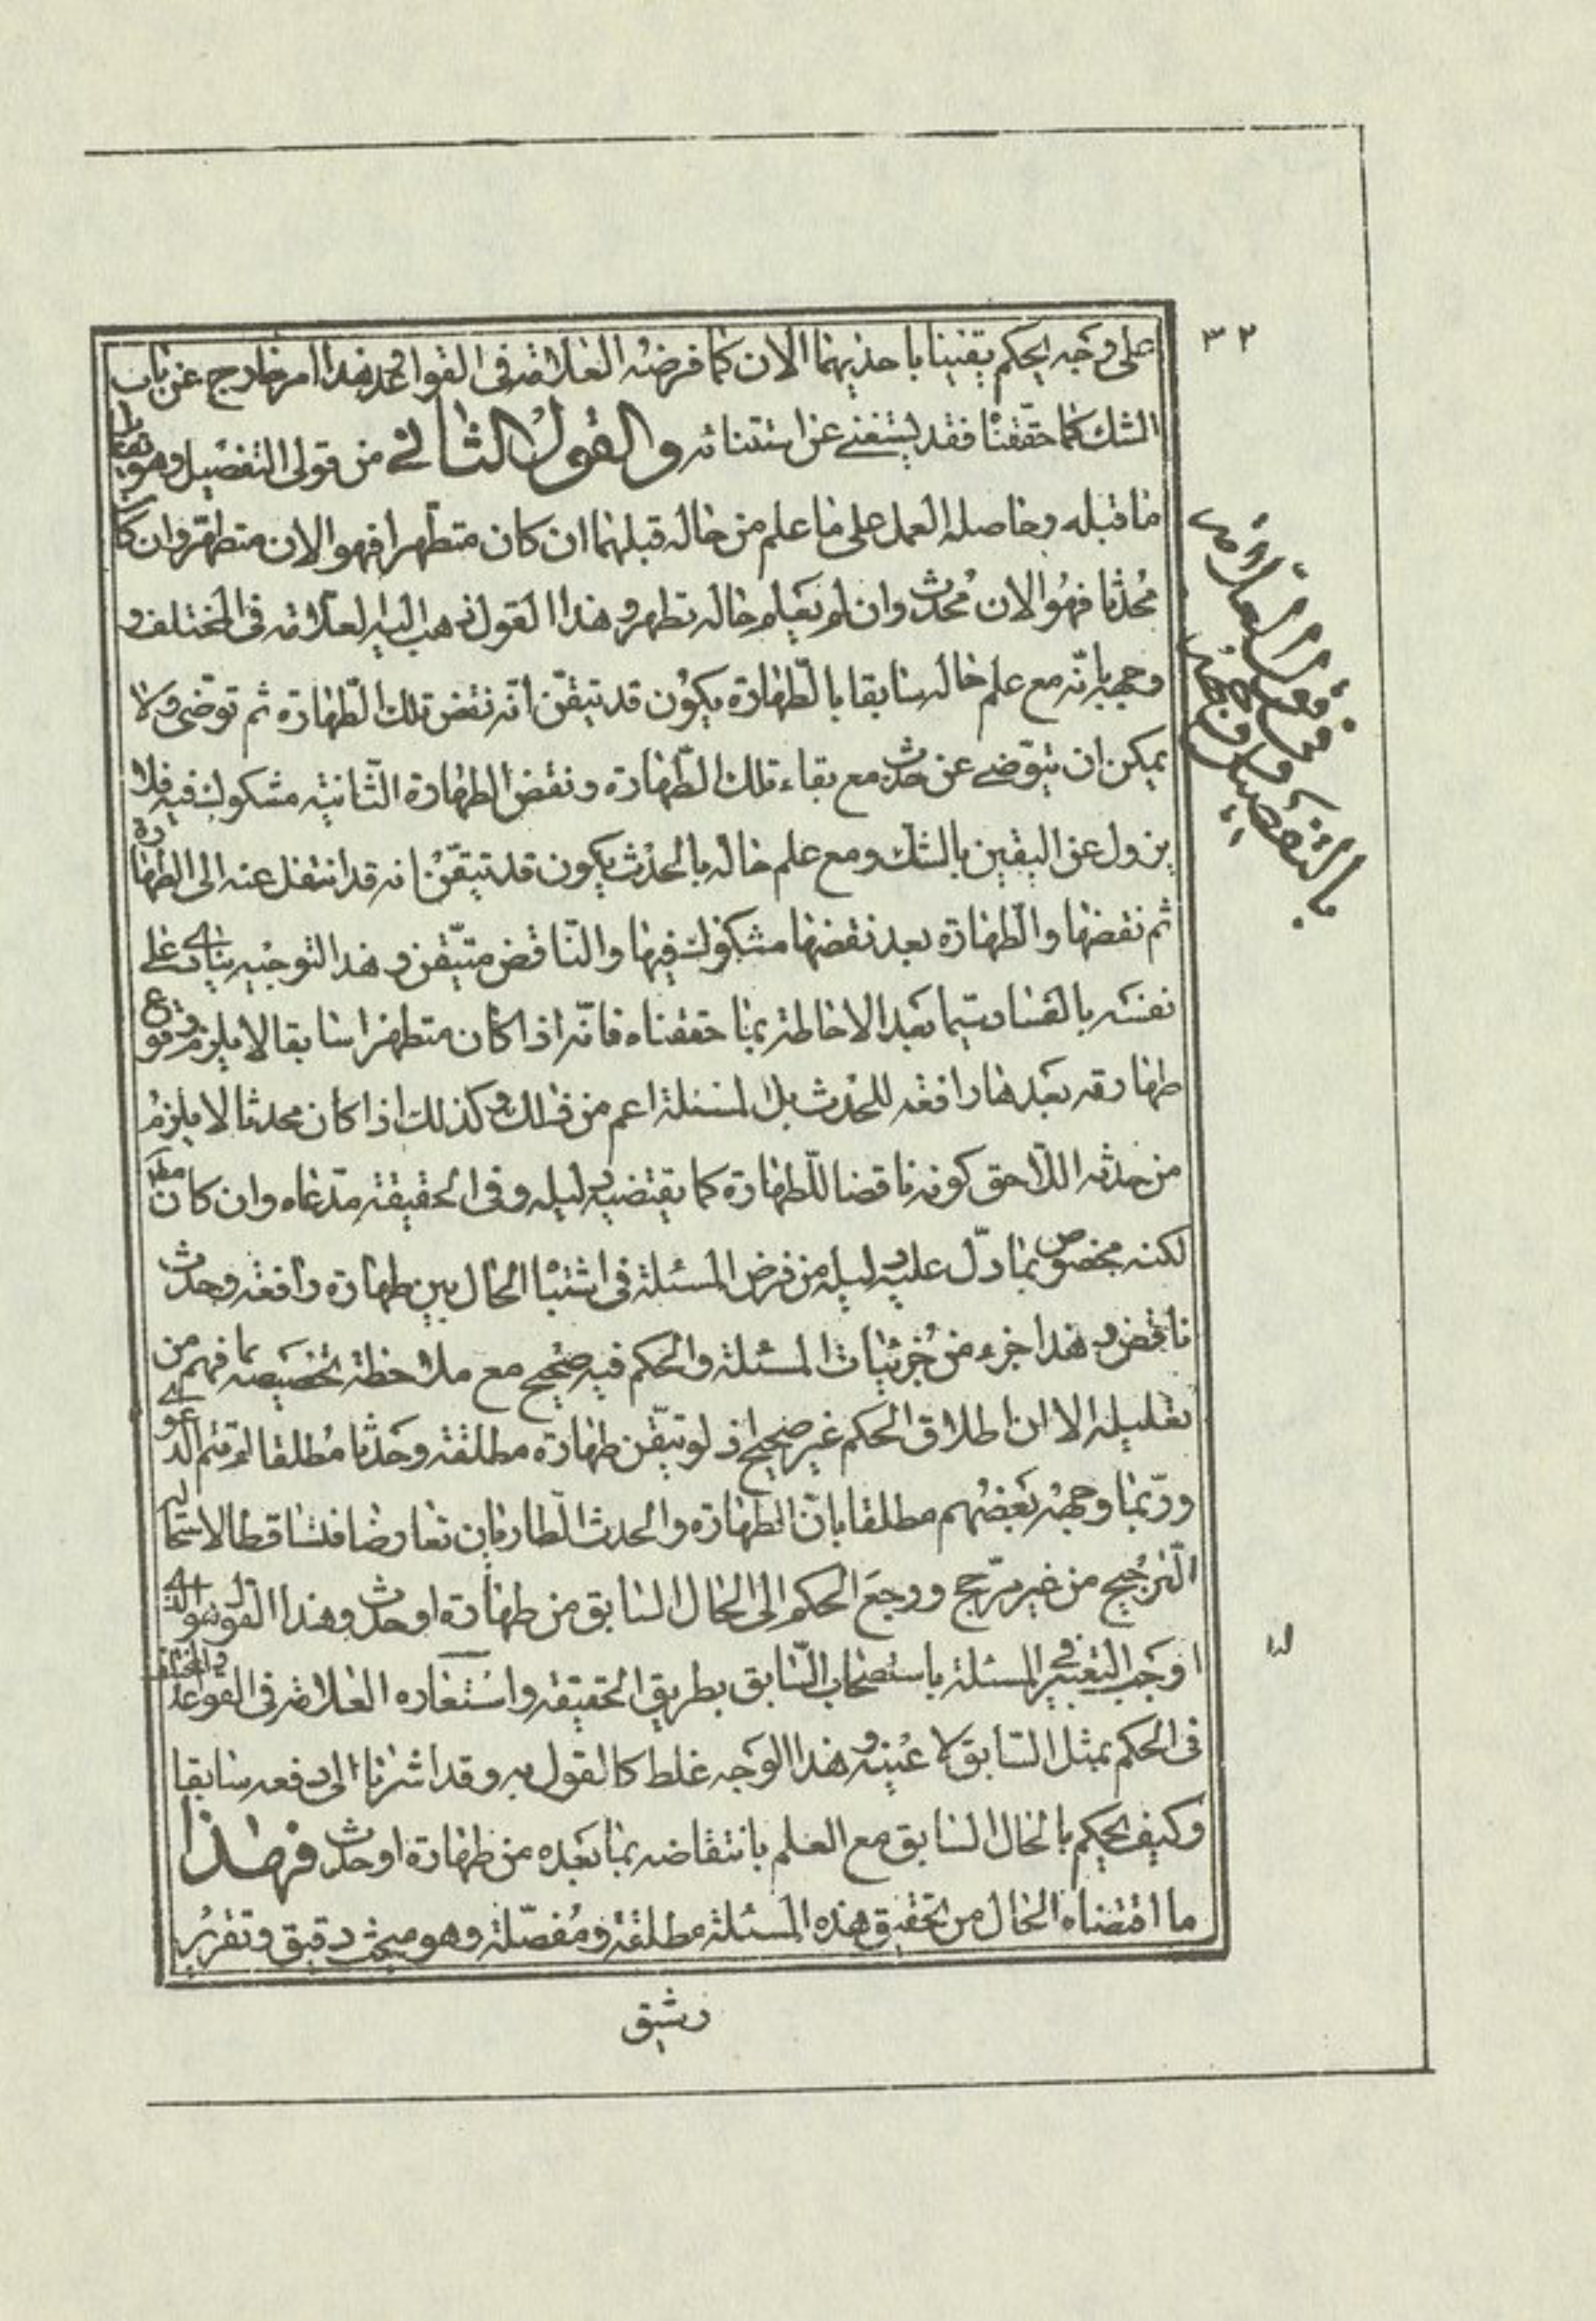 ٣٢
على وجه يحكم يقينا باحديهما الان كما فرضه العلامة فى القواعد وهذا امر خارج عن باب
الشك كما حققنا فقد يستغنى عن استثنائه والقول الثانى من قولى التفصيل وهو
ما قبله وحاصله العمل على ما علم من حاله قبلهما ان كان متطهرا فهو الان متطهر وان كان
محدثا فهو الان محدث وان لم يعلم حاله تطهر وهذا القول ذهب اليه العلامة فى المختلف و
وجهه بانه مع علم حاله سابقا بالطهارة يكون قد تيقن انه نقض تلك الطهارة ثم توضى ولا
يمكن ان يتوضى عن حدث مع بقاء تلك الطهارة ونقض الطهارة الثانية مشكوك فيه فلا
يزول عن اليقين بالشك ومع علم حاله بالحدث يكون قد تيقن انه قد انتقل عنه الى الطهارة
ثم نقضها والطهارة بعد نقضها مشكوك فيها والناقض متيقن وهذا التوجيه ينادى على
نفسه بالفساد سيما بعد الاحاطة بما حققناه فانه اذا كان متطهرا سابقا لا يلزم وقوع
طهارته بعدها رافعة للحدث بل المسئلة اعم من ذلك وكذلك اذا كان محدثا لا يلزم
من حدثه اللاحق كونه ناقضا للطهارة كما يقتضيه دليله وفى الحقيقة مدعاه وان كان مطلقا
لكنه مخصوص بما دل عليه دليله من فرض المسئلة فى اشتباه الحال بين طهارة رافعة وحدث
ناقض وهذا جزء من جزئيات المسئلة والحكم فيه صحيح مع ملاحظة تخصيصه بما فهم من
تعليله الا ان اطلاق الحكم غير صحيح اذ لو تيقن طهارة مطلقة وحدثا مطلقا لم يتم الدعوى
وربما وجهه بعضهم مطلقا بان الطهارة والحدث الطاريان تعارضا فتساقطا لاستحالة
الترجيح من غير مرجح ورجع الحكم الى الحال السابق من طهارة او حدث وهذا القول هو الذى
اوجب التعبير فى المسئلة باستصحاب السابق بطريق الحقيقة واستعاره العلامة فى القواعد والمختلف
فى الحكم بمثل السابق لا عينه وهذا الوجه غلط كالقول به وقد اشرنا الى دفعه سابقا
وكيف يحكم بالحال السابق مع العلم بانتقاضه بما بعده من طهارة او حدث فهذا
ما اقتضاه الحال من تحقيق هذه المسئلة مطلقة ومفصلة وهو مبحث دقيق وتقرير
رشيق